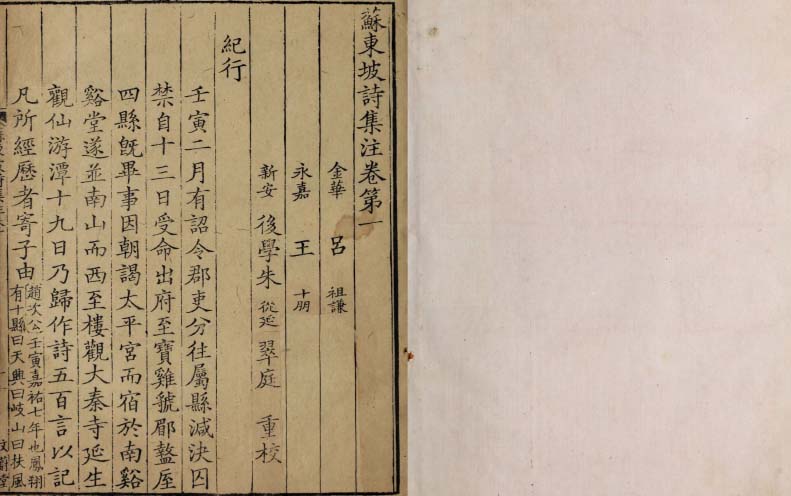 蘇東坡詩集注卷第一
金華 呂 祖謙
永嘉 王 十朋
新安 後學朱 從延 翠庭 重校
紀行
壬寅二月有詔令郡吏分往屬縣減決囚
禁自十三日受命出府至寶雞虢郿盩厔
四縣旣畢事因朝謁太平宮而宿於南谿
谿堂遂並南山而西至樓觀大秦寺延生
觀仙游潭十九日乃歸作詩五百言以記
凡所經歷者寄子由
趙次公壬寅嘉祐七年也鳳翔
有十縣曰天興曰岐山曰扶風
文蔚堂